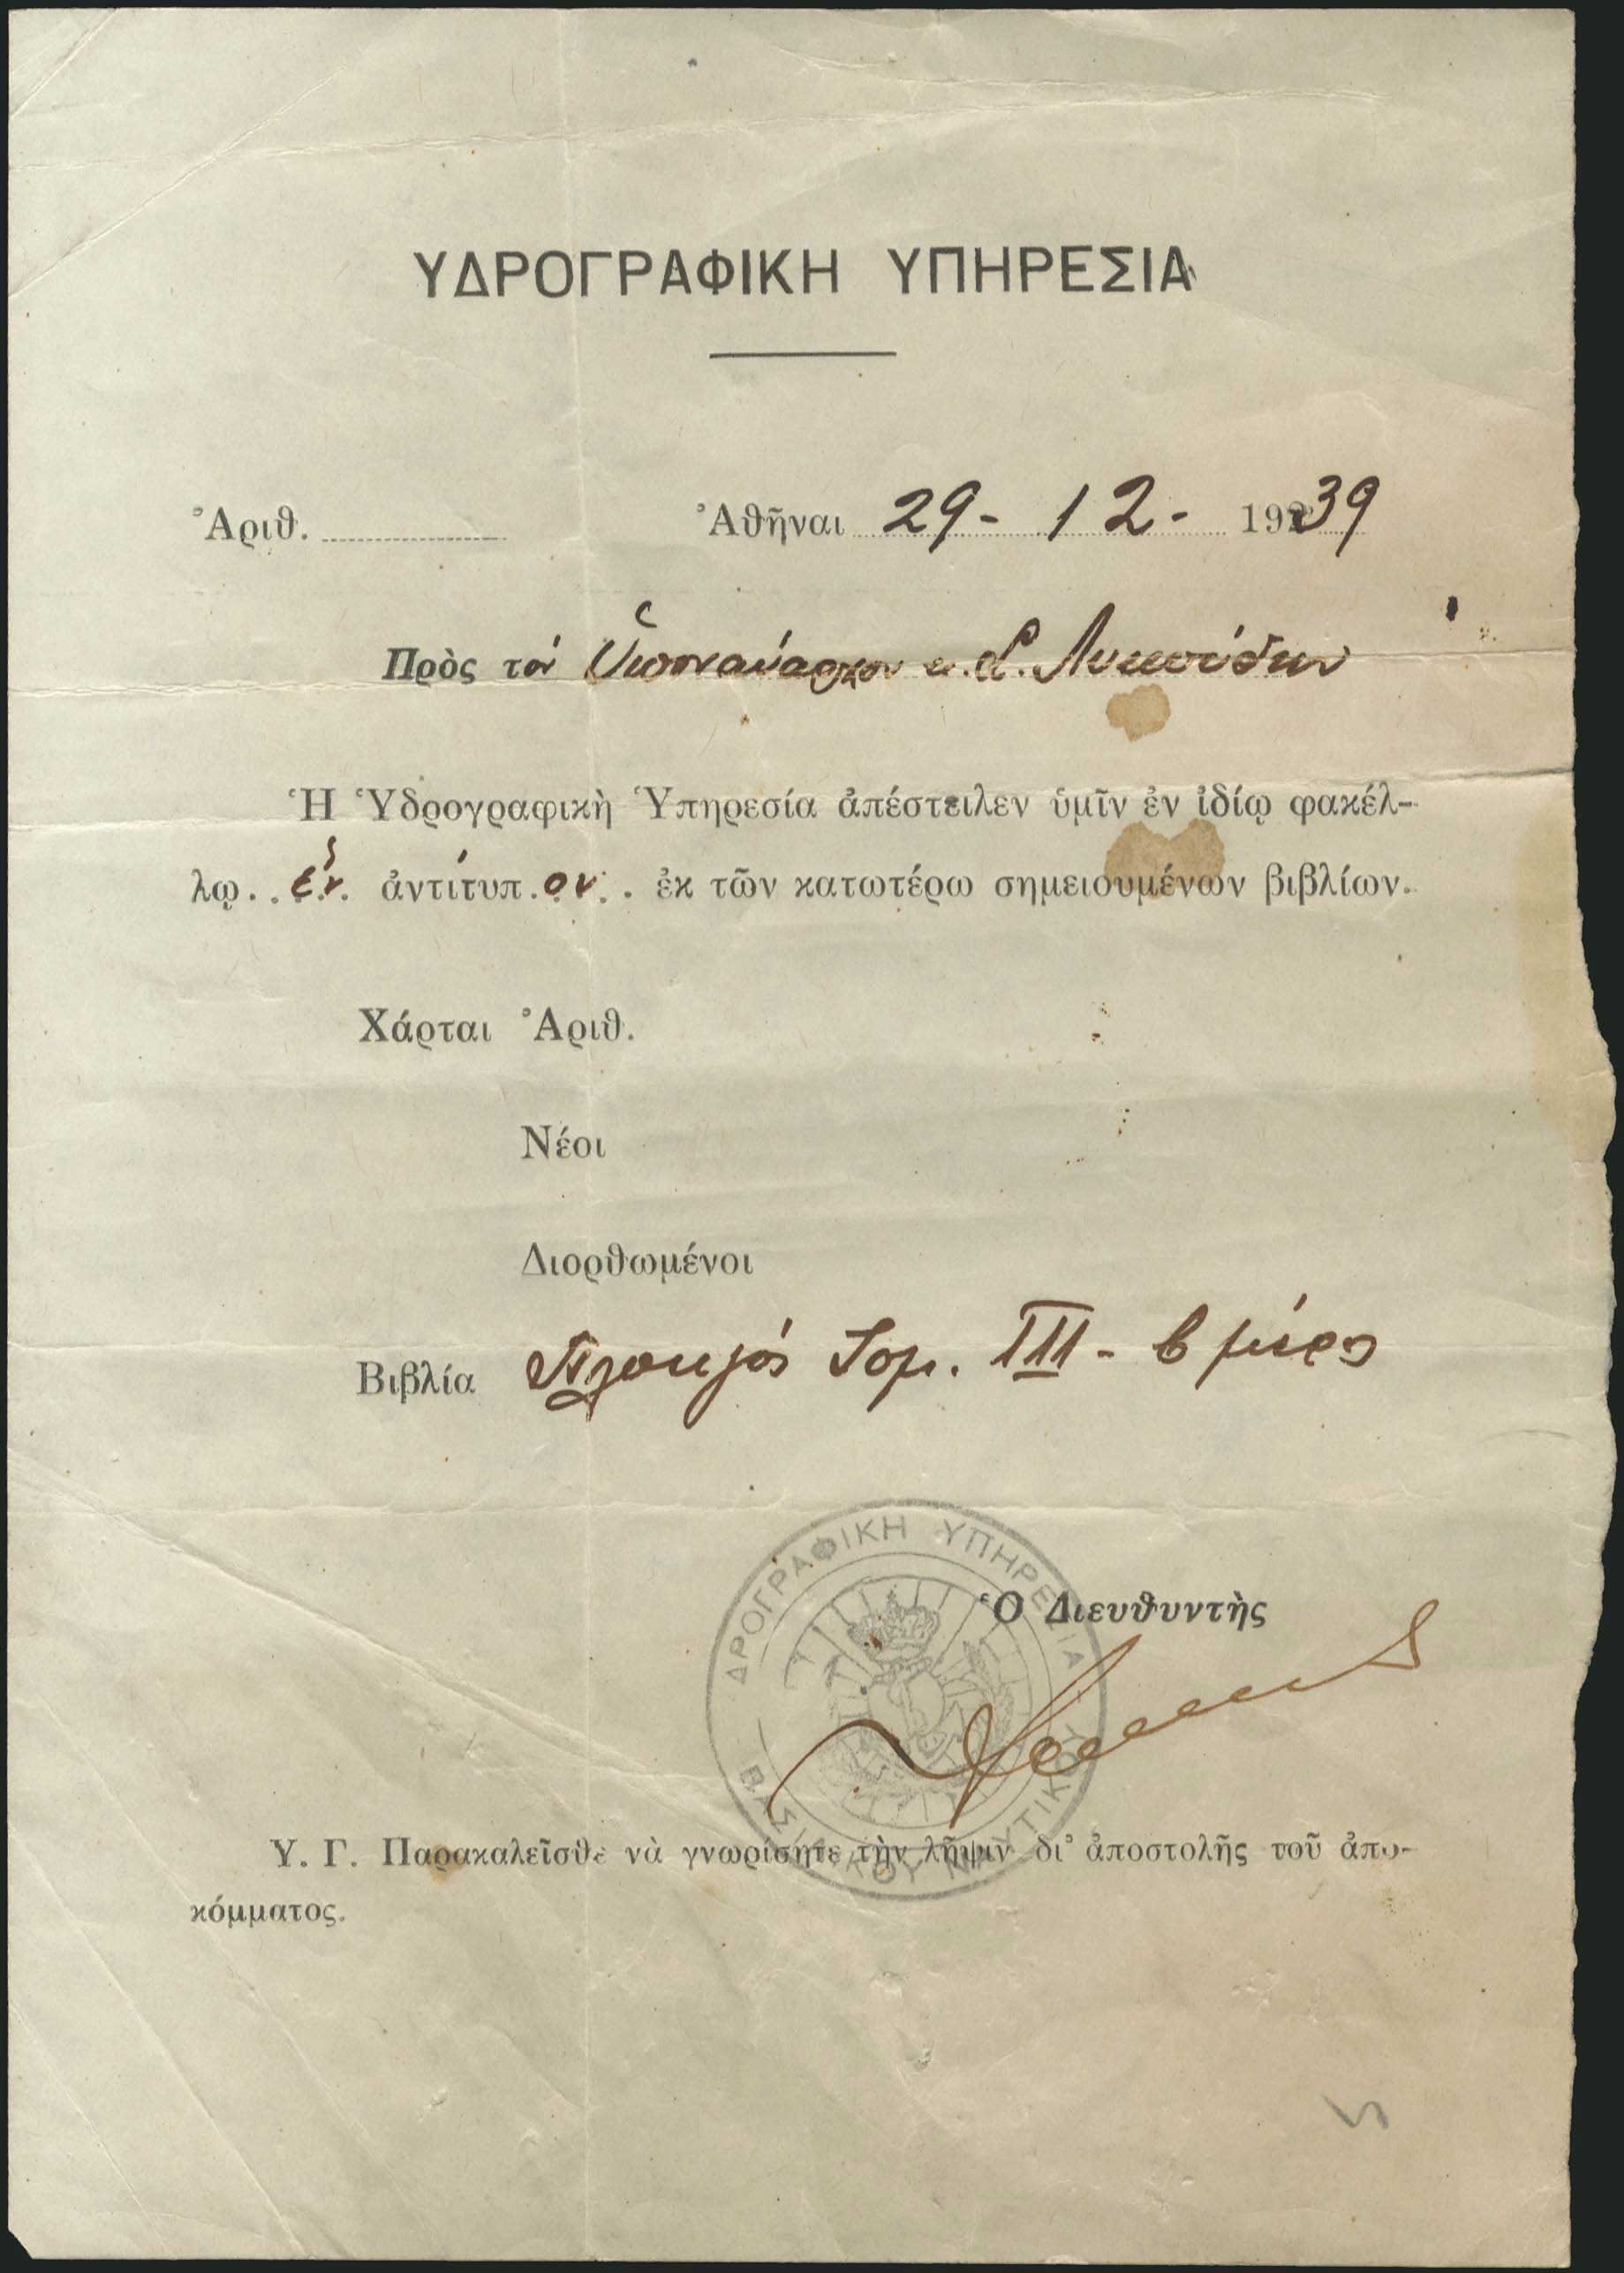 ΥΔΡΟΓΡΑΦΙΚΗ ΥΠΗΡΕΣΙΑ
Ἀριθ. Ἀθῆναι 29 - 12 - 1939
Πρὸς τὸν Ὑποναύαρχον κ. Σ. Λυκούδην
Ἡ Ὑδρογραφικὴ Ὑπηρεσία ἀπέστειλεν ὑμῖν ἐν ἰδίῳ φακέλ-
λῳ.. ἕν. ἀντίτυπ.ον.. ἐκ τῶν κατωτέρω σημειουμένων βιβλίων.
Χάρται Ἀριθ.
Νέοι
Διορθωμένοι
Βιβλία Πλοηγός Τομ. III - β μέρος
ΥΔΡΟΓΡΑΦΙΚΗ ΥΠΗΡΕΣΙΑ
ΒΑΣΙΛΙΚΟΥ ΝΑΥΤΙΚΟΥ
Ὁ Διευθυντὴς
Υ. Γ. Παρακαλεῖσθε νὰ γνωρίσητε τὴν λῆψιν δι' ἀποστολῆς τοῦ ἀπο-
κόμματος.